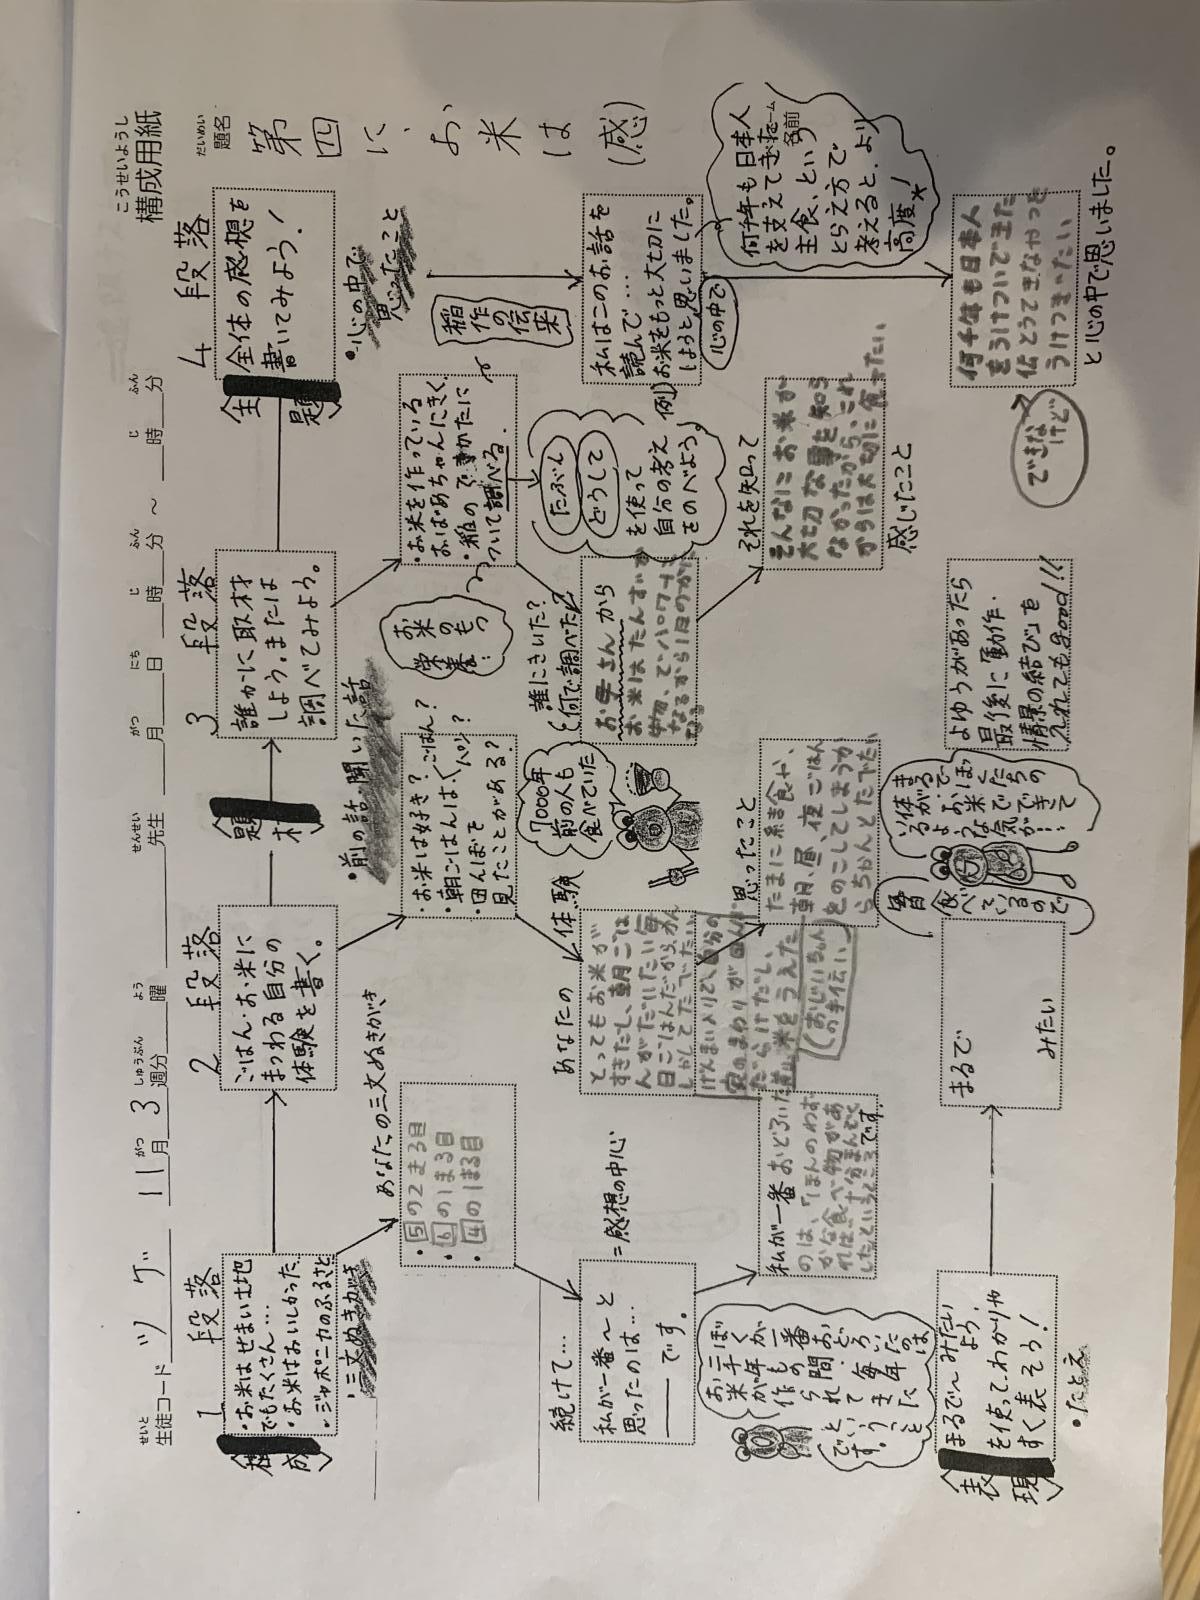 こうせいようし
構成用紙
だいめい
題名
第四に、お米は(感)
せいと
生徒コード ツゲ 11月 3週分 曜 先生 月 日 時 分 ～ 時 分
がつ しゅうぶん よう せんせい がつ にち じ ふん じ ふん
ネーム
名前
1 段落
・お米はせまい土地
でもたくさん…
・お米はおいしかった
・ジャポニカのふるさと
・三文ぬきがき
あなたの三文ぬきがき
・5の2まる目
・6の1まる目
・4の1まる目
続けて…
私が一番〜と
思ったのは…
――です。
=感想の中心
私が一番おどろいた
のは、「ほんのわず
かな食べ物があ
れば十分まんぞく
したというところです。
ぼくが一番おどろいたのは
お米が三千年もの間、
毎年作られてきた
ということです。
〈表現〉
まるで〜みたい
を使って、わかりや
すく表そう!
・たとえ
まるで
みたい
2 段落
ごはん・お米に
まつわる自分の
体験を書く。
〈題材〉
・前の話・聞いた話
・お米は好き?
・朝ごはんは?〈ごはん?パン?
・田んぼを
見たことがある?
7000年
前の人も
食べていた
あなたの体験
とってもお米が
すきだし、朝ごは
んがだいたい毎
日ごはんだからかん
しゃしてたべたい。
げんまい入りで、自分の
家のまわりが田んぼ
だらけだし、
米をうえた
(おじいちゃん
の手伝い)
思ったこと
たまに給食や、
朝、昼、夜ごはん
をのこしてしまうか
らちゃんとたべたい
毎日食べているので
まるでぼくたちの
体がお米でできて
いるような気が…
3 段落
誰かに取材
しよう。または
調べてみよう。
お米のもつ
栄養…
・お米を作っている
おばあちゃんにきく。
・稲のでかたに
ついて調べる。
誰にきいた?
(何で調べた?)
お母さんから
お米はたんすいか
物、でパワーに
なるから1日のかに
なる
たぶん
どうして
を使って
自分の考え
をのべよう。
それを知って
そんなにお米が
大切な事を知ら
なかったから、これ
からは大切に食べたい
感じたこと
よゆうがあったら
最後に「動作・
情景の結び」を
入れてもgood!!
4 段落
全体の感想を
書いてみよう!
〈主題〉
・心の中で
思ったこと
稲作の伝来
例)
私はこのお話を
読んで…
お米をもっと大切に
しようと思いました。
心の中で
何千年も日本人
を支えてきた
主食、という
とらえ方で
考えると、より
高度★!
何千年も日本人
をうけついできた
伝とうてきなやつを
うけつぎたい
できないけど
と心の中で思いました。